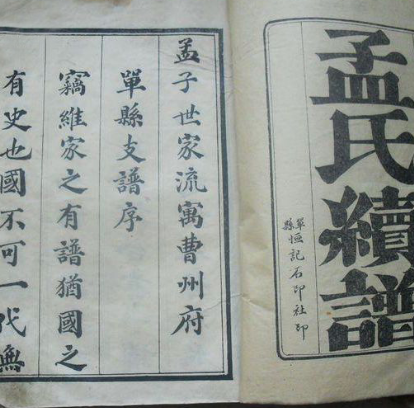 孟氏續譜
單縣恆記石印社印
孟子世家流寓曹州府
單縣支譜序
竊維家之有譜猶國之
有史也國不可一代無